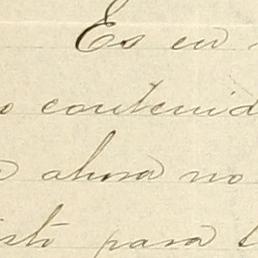 Es en
o contenid
ahora no
isto para